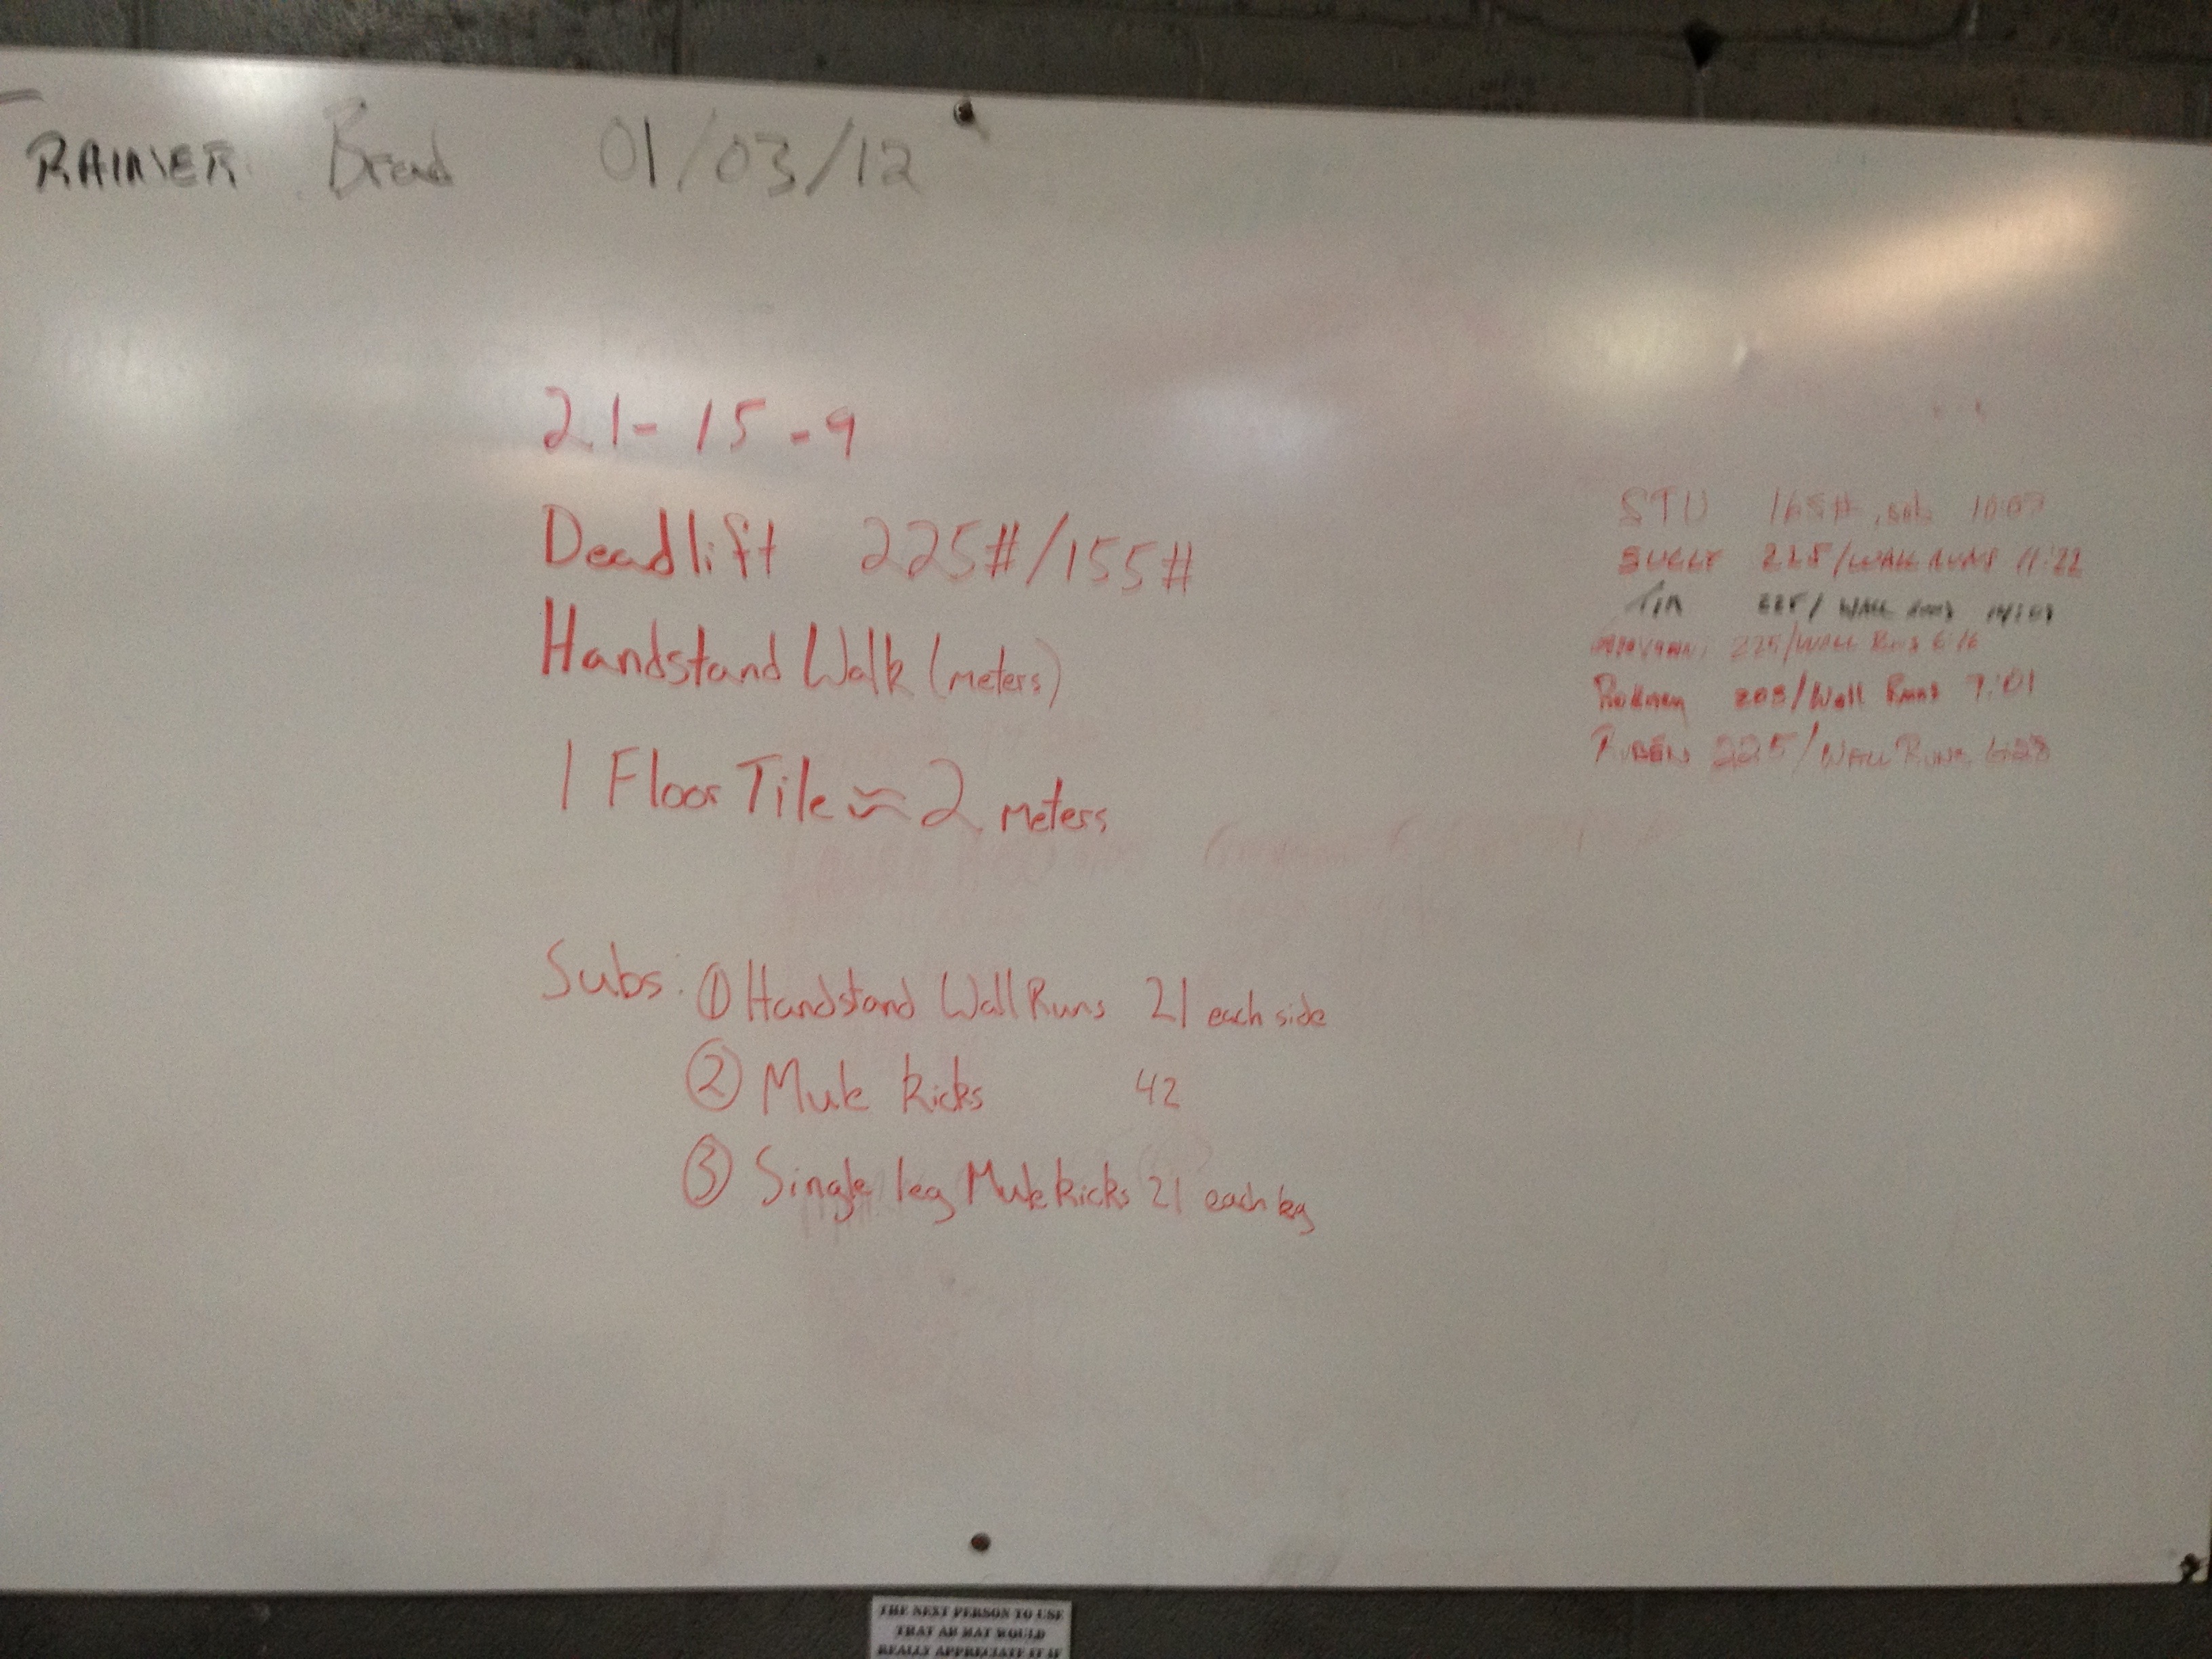 TRAINER Brad 01/03/12
21-15-9
Deadlift 225#/155#
Handstand Walk (meters)
1 Floor Tile ≈ 2 meters
Subs: ① Handstand Wall Runs 21 each side
② Mule kicks 42
③ Single leg Mule kicks 21 each leg
STU 165#, sub 10:07
SULLY 225/WALL RUNS 11:22
225/WALL RUNS
225/WALL RUNS 6:16
Rodney 205/Wall Runs 7:01
RUBEN 225/WALL RUNS 6:28
THE NEXT PERSON TO USE
THAT AB MAT WOULD
REALLY APPRECIATE IT IF